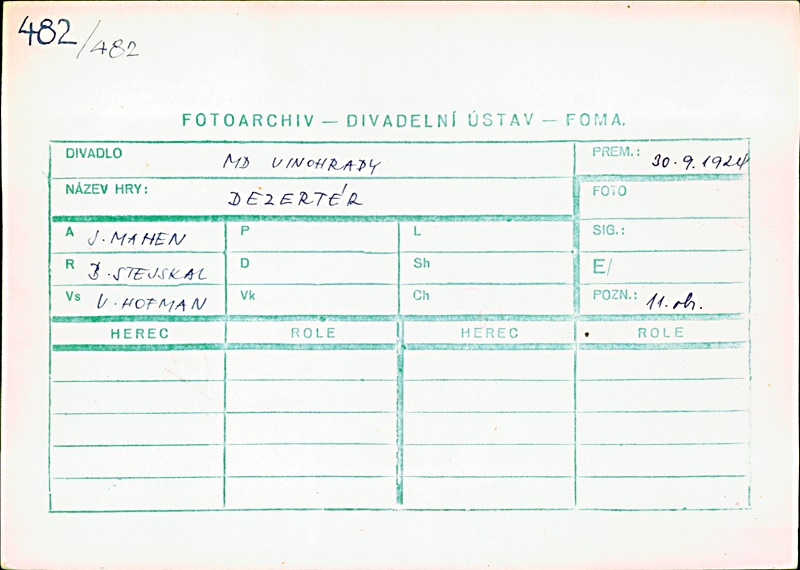 482/482
FOTOARCHIV — DIVADELNÍ ÚSTAV — FOMA.
DIVADLO MD VINOHRADY PREM.: 30.9.1924
NÁZEV HRY: DEZERTÉR FOTO
A J. MAHEN P L SIG.:
R B. STEJSKAL D Sh E/
Vs V. HOFMAN Vk Ch POZN.: 11. ob.
HEREC ROLE HEREC ROLE